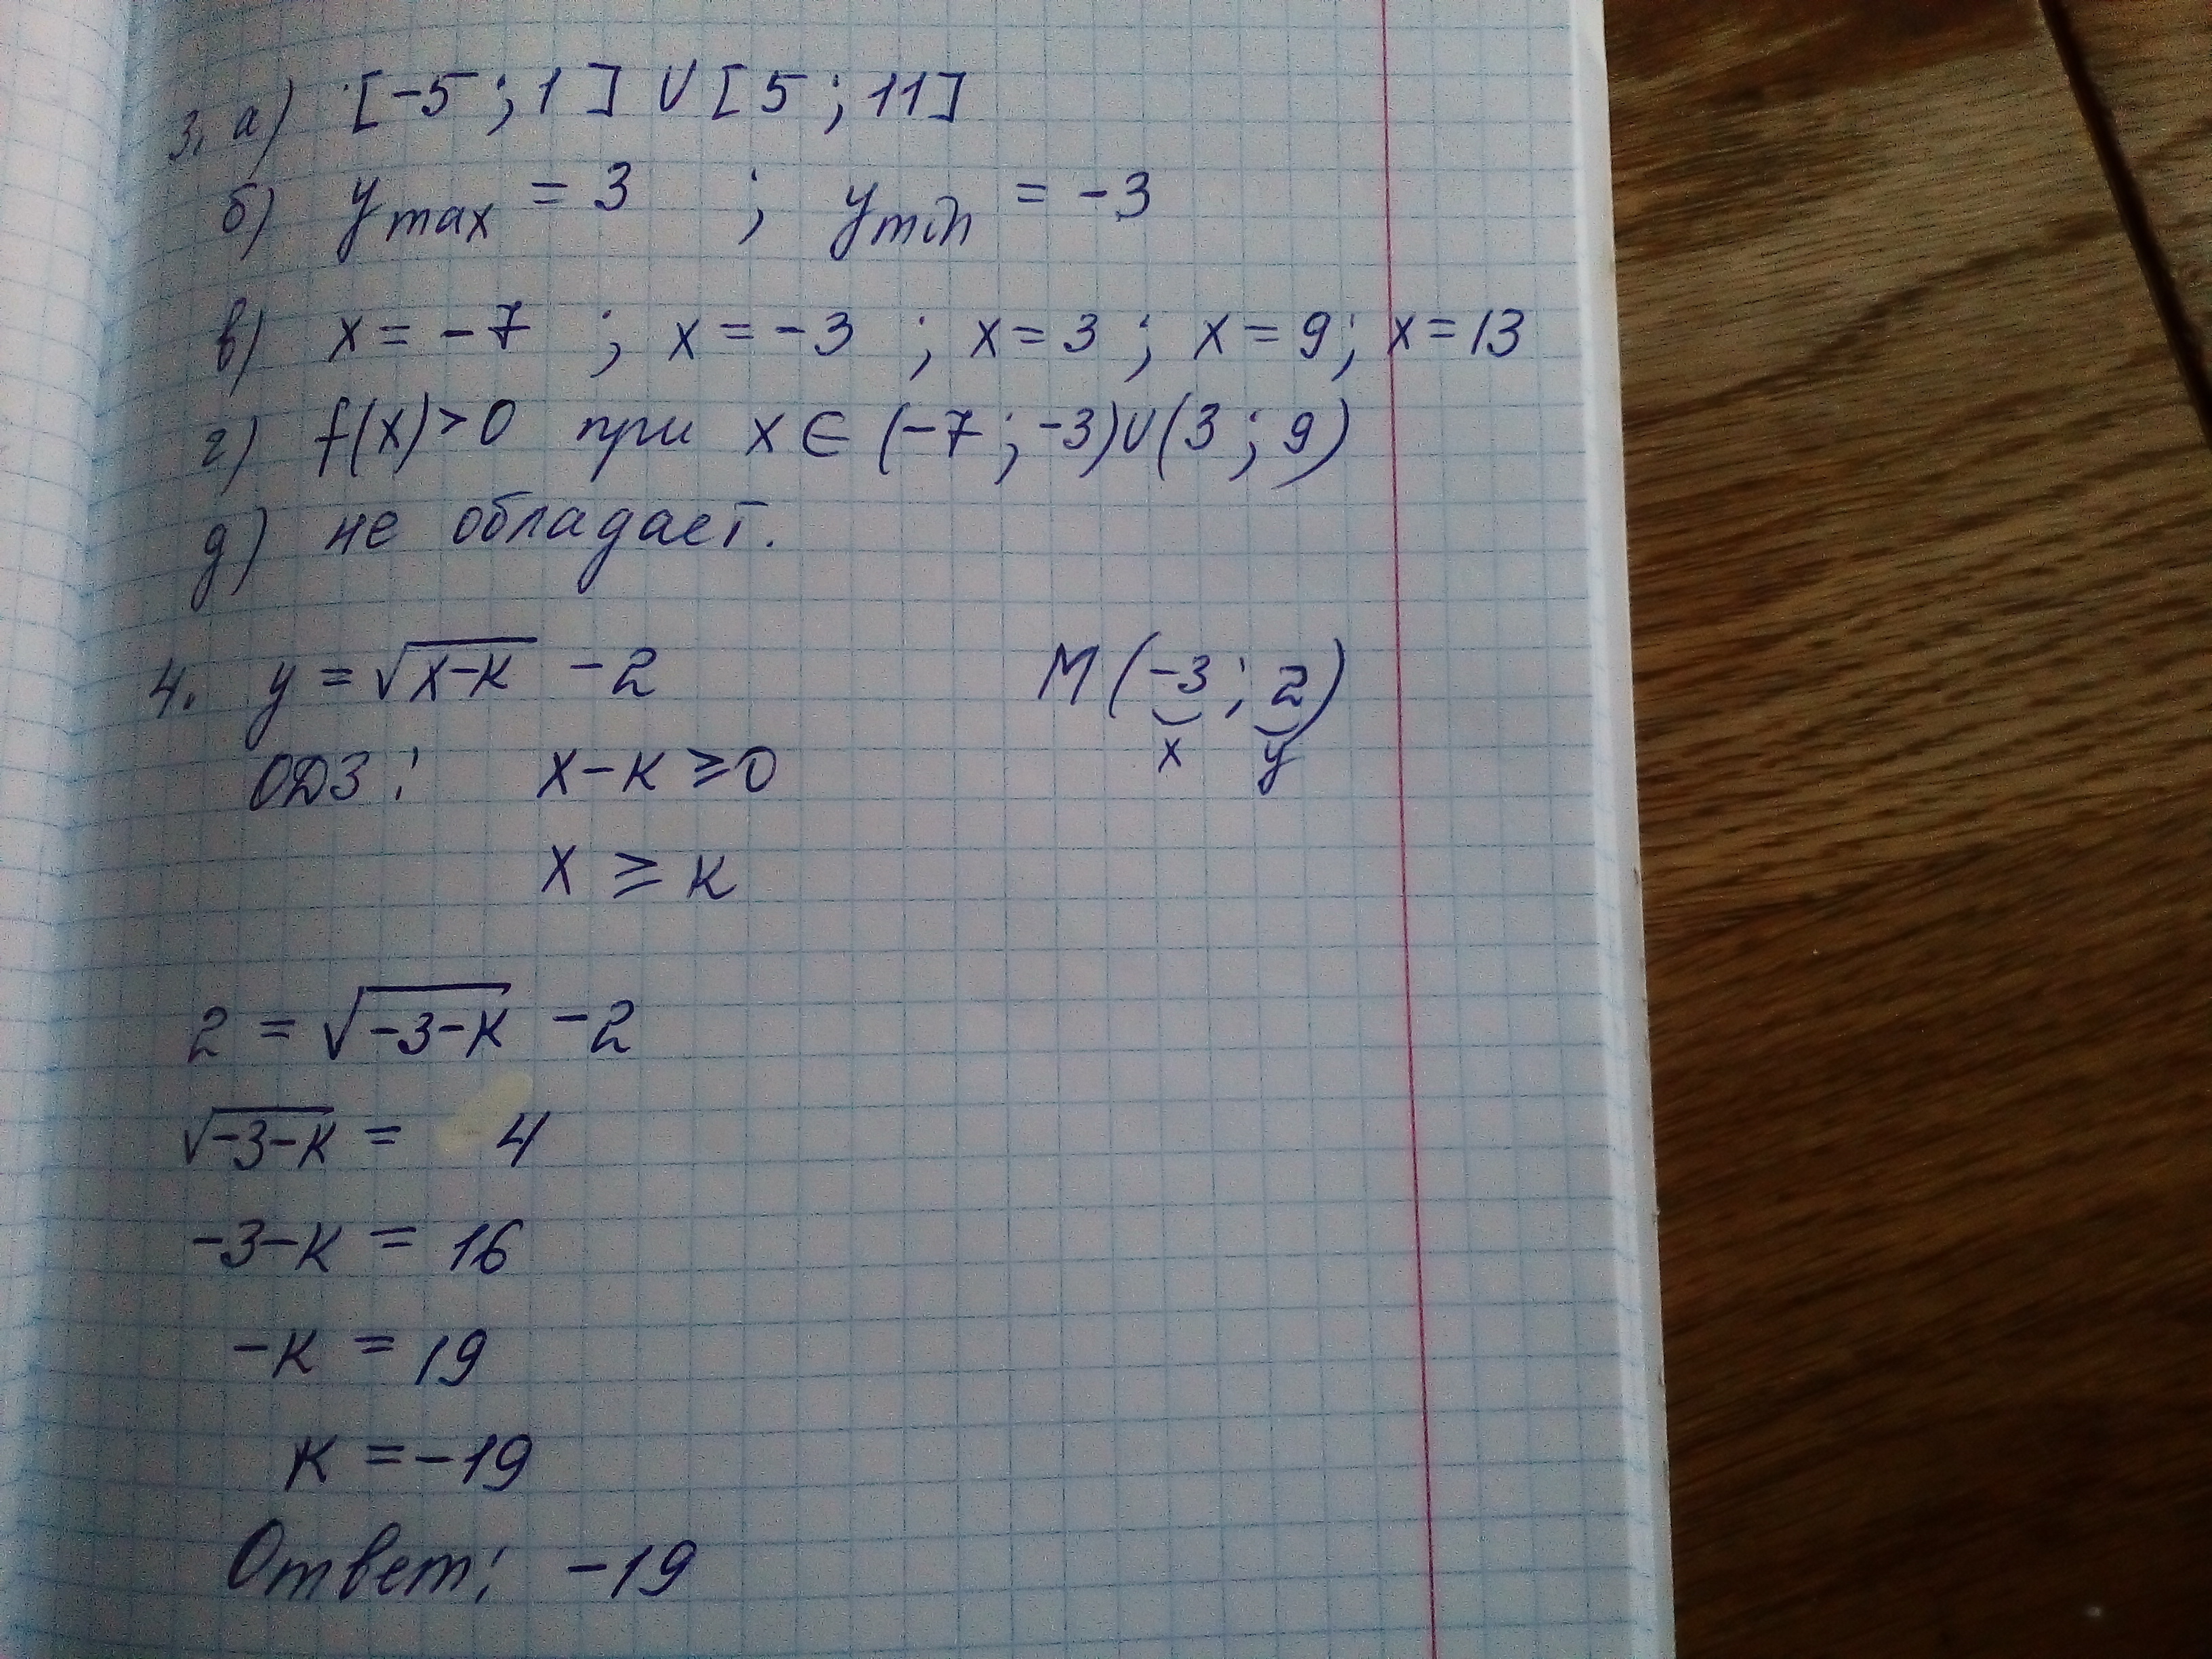 3. а) [-5 ; 1] ∪ [5 ; 11]
б) y max = 3 ; y min = -3
в) x = -7 ; x = -3 ; x = 3 ; x = 9 ; x = 13
г) f(x) > 0 при x ∈ (-7 ; -3) ∪ (3 ; 9)
д) не обладает.
4. y = √(x-к) - 2 M (-3 ; 2)
x y
ОДЗ: x - к ≥ 0
x ≥ к
2 = √(-3-к) - 2
√(-3-к) = 4
-3-к = 16
-к = 19
к = -19
Ответ: -19